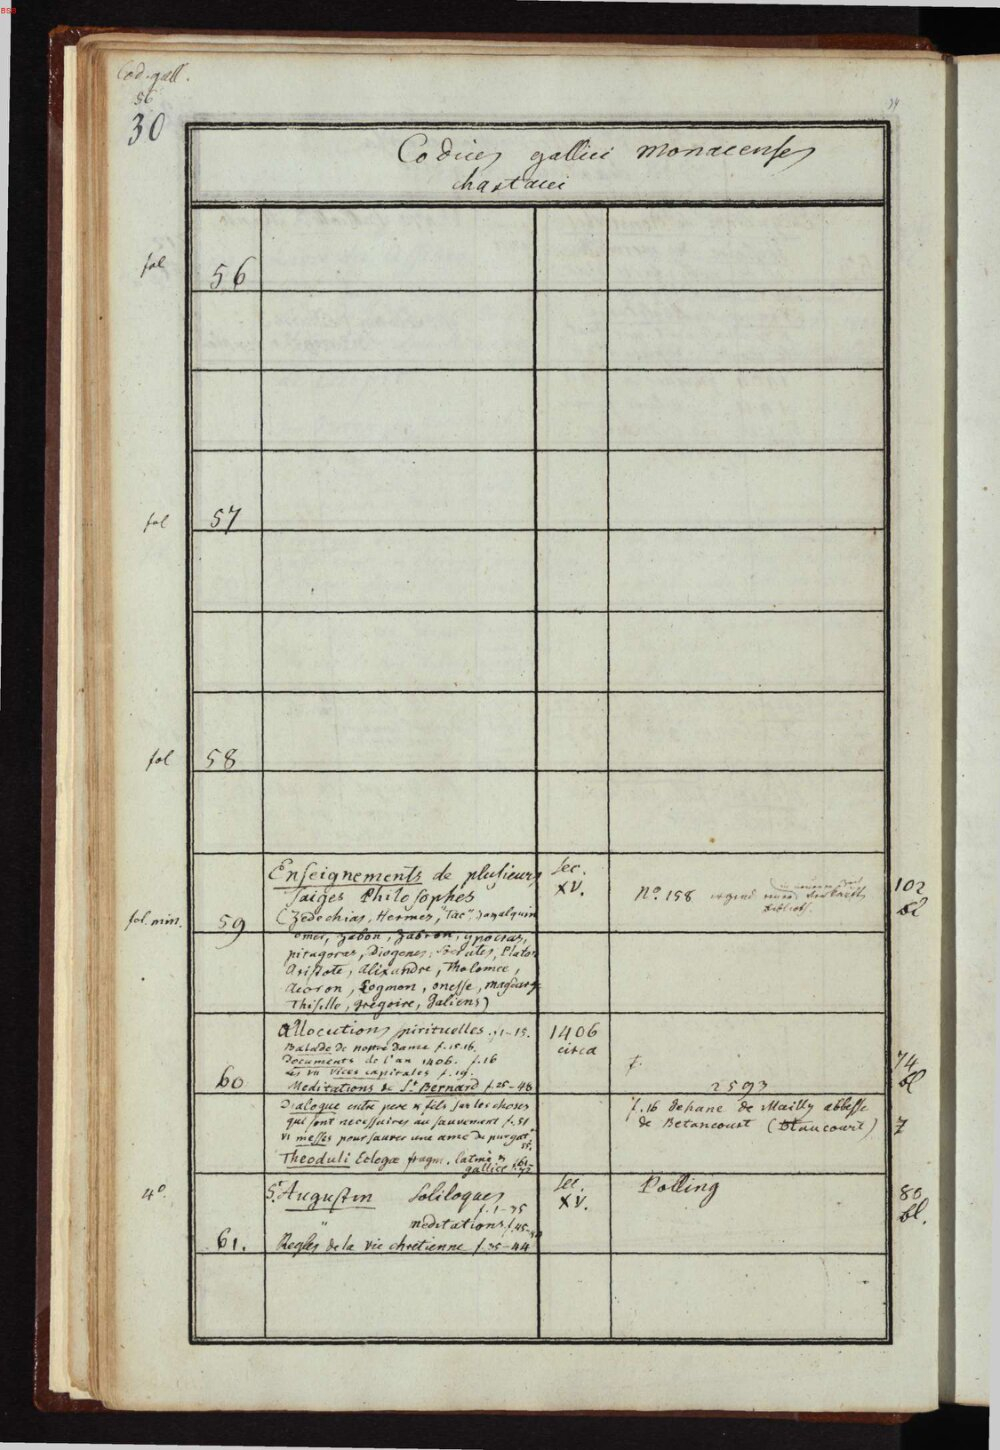 BSB
Cod. gall.
56
30
Codices gallici monacenses
chartacei
fol 56
fol 57
fol 58
Enseignements de plusieurs
Saiges Philosophes
(Zedechias, Hermes, Tac,
fol. min. 59
omer, Zabon, Zabron, ypocras,
pitagoras, Diogenes, Socrates, Platon
Aristote, Alixandre, Tholomee,
Legmon, onesse,
Thesille, gregoire, Galiens)
sec.
XV.
No. 158
biblioth.
102
bl
Allocutions spirituelles. f. 1-15.
Balade de nostre Dame f. 15.16.
Documents de l'an 1406. f. 16
les VII vices capitales f. 19.
60 Meditations de St. Bernard f. 25-48
Dialogue entre pere & fils sur les choses
qui sont necessaires au sauvement f. 51
VI messes pour sauver une ame du purgat.
55.
Theoduli Ecloga fragm. latine &
gallice f. 61-72
1406
circa
f.
2593
f. 16 Jehane de Mailly abbesse
de Betancourt (Blaucourt)
74
bl
7
4o. St. Augustin Soliloques
f. 1-35
" meditations f. 45-
61. Regles de la vie chretienne f. 35-44
sec.
XV.
Polling
80
bl.